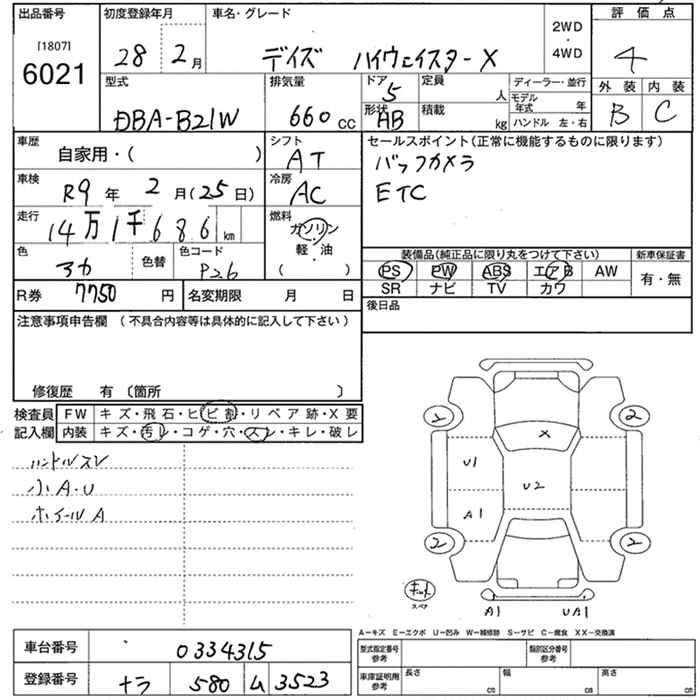 出品番号 初度登録年月 車名・グレード 評価点
[1807]
6021
28 2月 デイズ ハイウェイスターX 2WD・4WD 4
型式 排気量 ドア 5 定員 人 ディーラー・並行 外装 内装
DBA-B21W 660cc 形状 AB 積載 kg モデル年式 年 B C
ハンドル 左・右
車歴 シフト セールスポイント(正常に機能するものに限ります)
自家用・( ) AT バックカメラ
車検 冷房 ETC
R9年 2月(25日) AC
走行 燃料
14万1千686km ガソリン
色 色替 色コード 軽・油 装備品(純正品に限り丸をつけて下さい) 新車保証書
P26 ( ) PS PW ABS エアB AW 有・無
R券 7750円 名変期限 月 日 SR ナビ TV カワ
注意事項申告欄 (不具合内容等は具体的に記入して下さい) 後日品
修復歴 有〔箇所 〕
検査員 FW キズ・飛石・ヒビ割・リペア跡・X要
記入欄 内装 キズ・汚レ・コゲ・穴・スレ・キレ・破レ
ハンドルスレ
小A・U
ホイールA
2 2
X
U1
U2
A1
2 2
スペア
A1 UA1
A-キズ E-エクボ U-凹み W-補修跡 S-サビ C-腐食 XX-交換済
車台番号 0334315 型式指定番号 参考 類別区分番号 参考
登録番号 ナラ 580 ム 3523 車庫証明用 参考 長さ cm 幅 cm 高さ cm